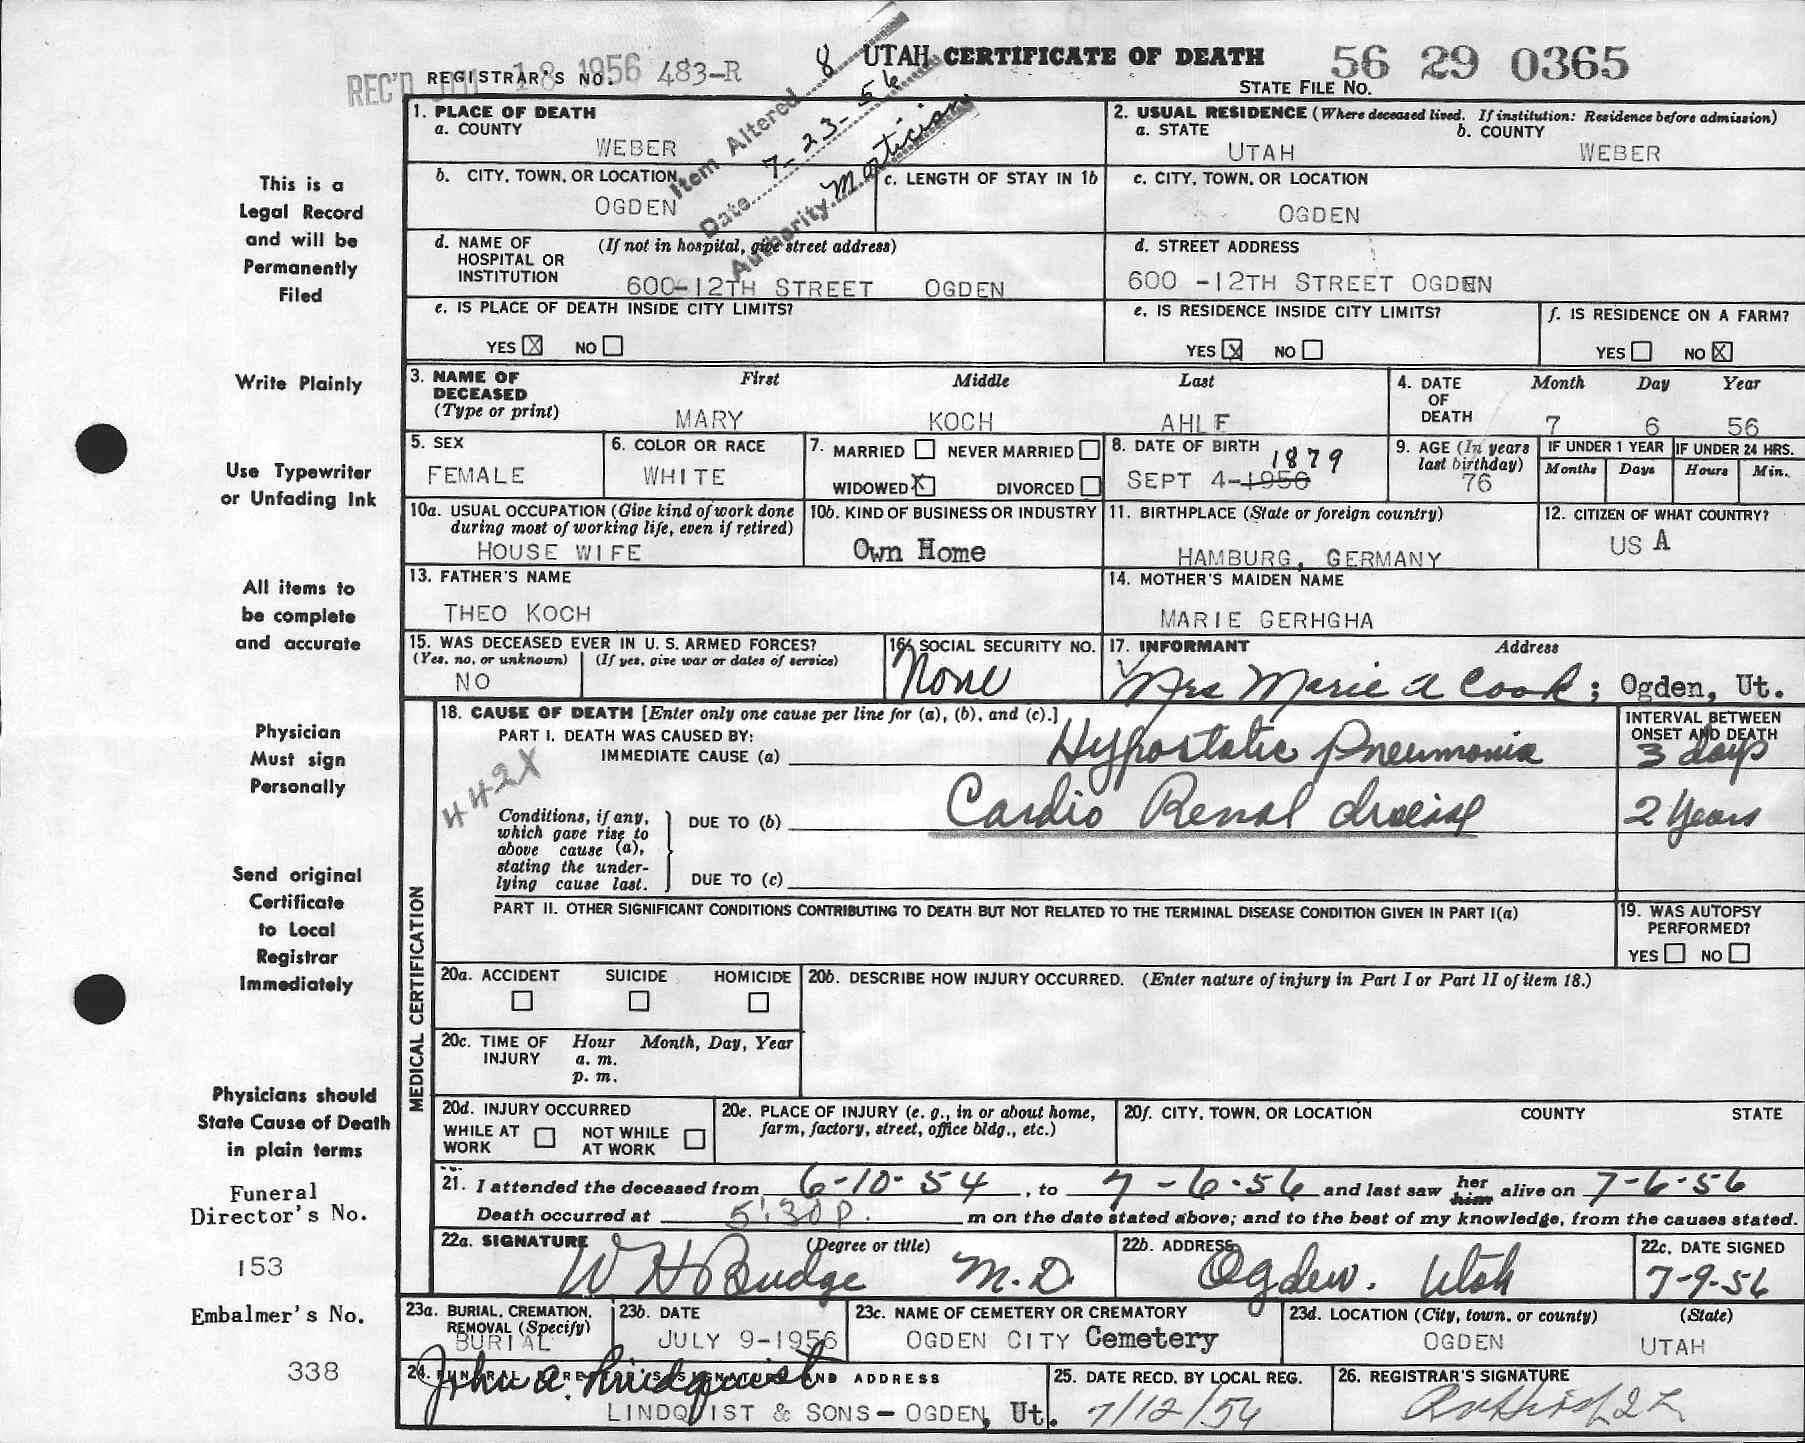 8 UTAH CERTIFICATE OF DEATH 56 29 0365
REC'D 18 1956 REGISTRAR'S NO. 483-R STATE FILE NO.
Item Altered
Date 7-23-56
Authority Mortician
1. PLACE OF DEATH
a. COUNTY
WEBER
2. USUAL RESIDENCE (Where deceased lived. If institution: Residence before admission)
a. STATE b. COUNTY
UTAH WEBER
b. CITY, TOWN, OR LOCATION
OGDEN
c. LENGTH OF STAY IN 1b
c. CITY, TOWN, OR LOCATION
OGDEN
d. NAME OF HOSPITAL OR INSTITUTION (If not in hospital, give street address)
600-12TH STREET OGDEN
d. STREET ADDRESS
600 -12TH STREET OGDEN
e. IS PLACE OF DEATH INSIDE CITY LIMITS?
YES X NO
e. IS RESIDENCE INSIDE CITY LIMITS?
YES X NO
f. IS RESIDENCE ON A FARM?
YES NO X
3. NAME OF DECEASED (Type or print)
First Middle Last
MARY KOCH AHLF
4. DATE OF DEATH
Month Day Year
7 6 56
5. SEX
FEMALE
6. COLOR OR RACE
WHITE
7. MARRIED NEVER MARRIED
WIDOWED X DIVORCED
8. DATE OF BIRTH
1879
SEPT 4-1956
9. AGE (In years last birthday)
76
IF UNDER 1 YEAR
Months Days
IF UNDER 24 HRS.
Hours Min.
10a. USUAL OCCUPATION (Give kind of work done during most of working life, even if retired)
HOUSE WIFE
10b. KIND OF BUSINESS OR INDUSTRY
Own Home
11. BIRTHPLACE (State or foreign country)
HAMBURG, GERMANY
12. CITIZEN OF WHAT COUNTRY?
US A
13. FATHER'S NAME
THEO KOCH
14. MOTHER'S MAIDEN NAME
MARIE GERHGHA
15. WAS DECEASED EVER IN U. S. ARMED FORCES?
(Yes, no, or unknown) (If yes, give war or dates of service)
NO
16. SOCIAL SECURITY NO.
None
17. INFORMANT Address
Mrs Marie A Cook; Ogden, Ut.
MEDICAL CERTIFICATION
18. CAUSE OF DEATH [Enter only one cause per line for (a), (b), and (c).]
PART I. DEATH WAS CAUSED BY:
IMMEDIATE CAUSE (a) Hypostatic Pneumonia
INTERVAL BETWEEN ONSET AND DEATH
3 days
442X
Conditions, if any, which gave rise to above cause (a), stating the underlying cause last.
DUE TO (b) Cardio Renal disease 2 years
DUE TO (c)
PART II. OTHER SIGNIFICANT CONDITIONS CONTRIBUTING TO DEATH BUT NOT RELATED TO THE TERMINAL DISEASE CONDITION GIVEN IN PART I(a)
19. WAS AUTOPSY PERFORMED?
YES NO
20a. ACCIDENT SUICIDE HOMICIDE
20b. DESCRIBE HOW INJURY OCCURRED. (Enter nature of injury in Part I or Part II of item 18.)
20c. TIME OF INJURY Hour Month, Day, Year
a. m.
p. m.
20d. INJURY OCCURRED
WHILE AT WORK NOT WHILE AT WORK
20e. PLACE OF INJURY (e. g., in or about home, farm, factory, street, office bldg., etc.)
20f. CITY, TOWN, OR LOCATION COUNTY STATE
21. I attended the deceased from 6-10-54, to 7-6-56 and last saw her him alive on 7-6-56
Death occurred at 5:30 p. m on the date stated above; and to the best of my knowledge, from the causes stated.
22a. SIGNATURE (Degree or title)
W H Budge M.D.
22b. ADDRESS
Ogden. Utah
22c. DATE SIGNED
7-9-56
23a. BURIAL, CREMATION, REMOVAL (Specify)
BURIAL
23b. DATE
JULY 9-1956
23c. NAME OF CEMETERY OR CREMATORY
OGDEN CITY Cemetery
23d. LOCATION (City, town, or county) (State)
OGDEN UTAH
24. FUNERAL DIRECTOR'S SIGNATURE AND ADDRESS
John A. Lindquist
LINDQUIST & SONS-OGDEN, Ut.
25. DATE RECD. BY LOCAL REG.
7/12/56
26. REGISTRAR'S SIGNATURE
This is a
Legal Record
and will be
Permanently
Filed
Write Plainly
Use Typewriter
or Unfading Ink
All items to
be complete
and accurate
Physician
Must sign
Personally
Send original
Certificate
to Local
Registrar
Immediately
Physicians should
State Cause of Death
in plain terms
Funeral
Director's No.
153
Embalmer's No.
338